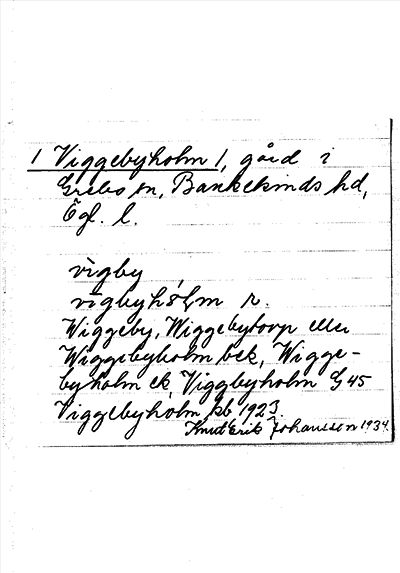 1 Viggebyholm /, gård i
Grebo sn, Bankekinds hd,
Ögl. l.
vigby
vigbyhólm r.
Wiggeby, Wiggebytorp eller
Wiggebyholm bek, Wigge-
byholm ek, Viggbyholm G 45
Viggebyholm kb 1923.
Knut Erik Johansson 1934.